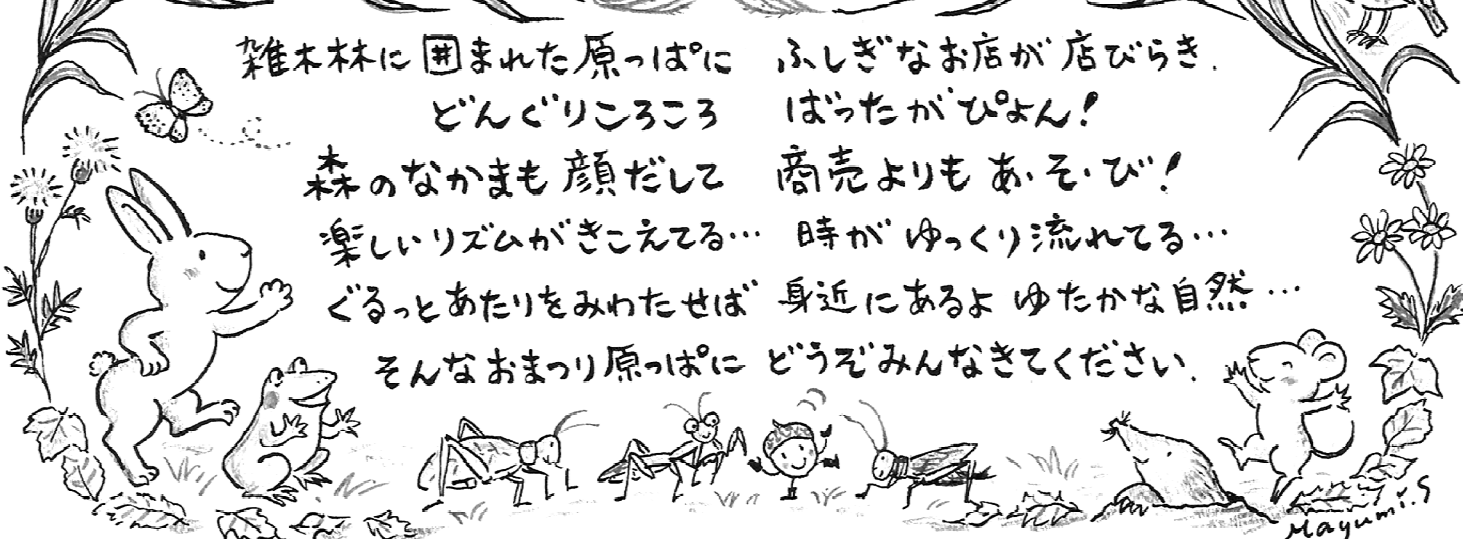 雑木林に囲まれた原っぱに ふしぎなお店が店びらき.
どんぐりころころ ばったがぴょん!
森のなかまも顔だして 商売よりもあ・そ・び!
楽しいリズムがきこえてる… 時がゆっくり流れてる…
ぐるっとあたりをみわたせば 身近にあるよゆたかな自然…
そんなおまつり原っぱに どうぞみんなきてください.
Mayumi.S